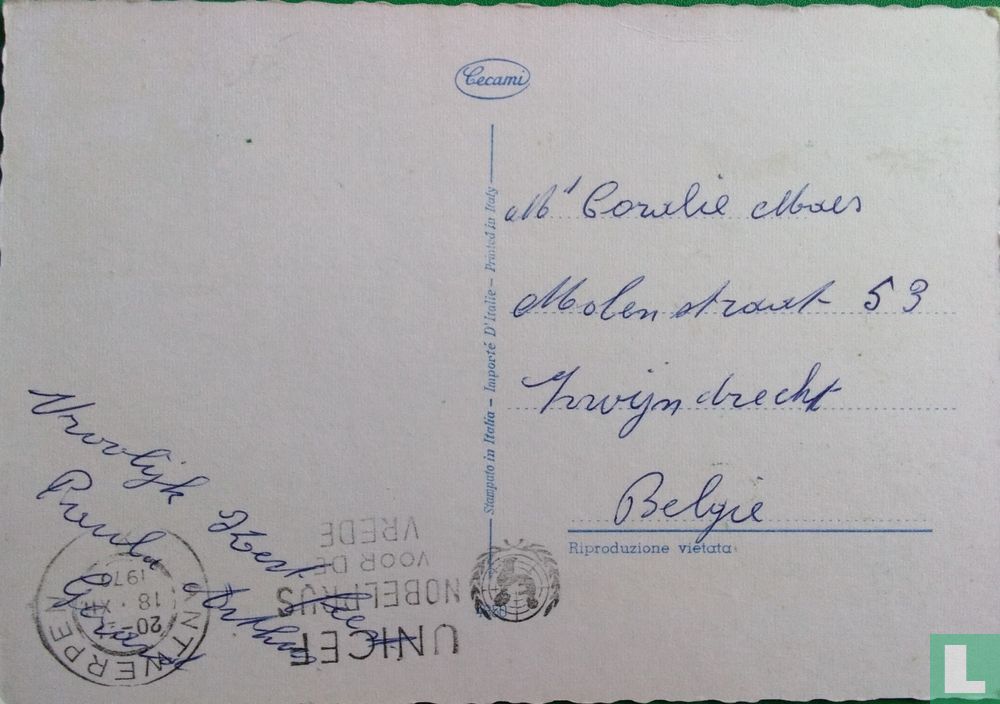 Cecami
Mʳ Coralie Maes
Molenstraat 53
Zwijndrecht
Belgie
Riproduzione vietata
Stampato in Italia - Importé D'Italie - Printed in Italy
Vroolijk Kerst
Arthur
UNICEF
NOBELPRIJS
VOOR DE
VREDE
ANTWERPEN
20-
18 · XII
L